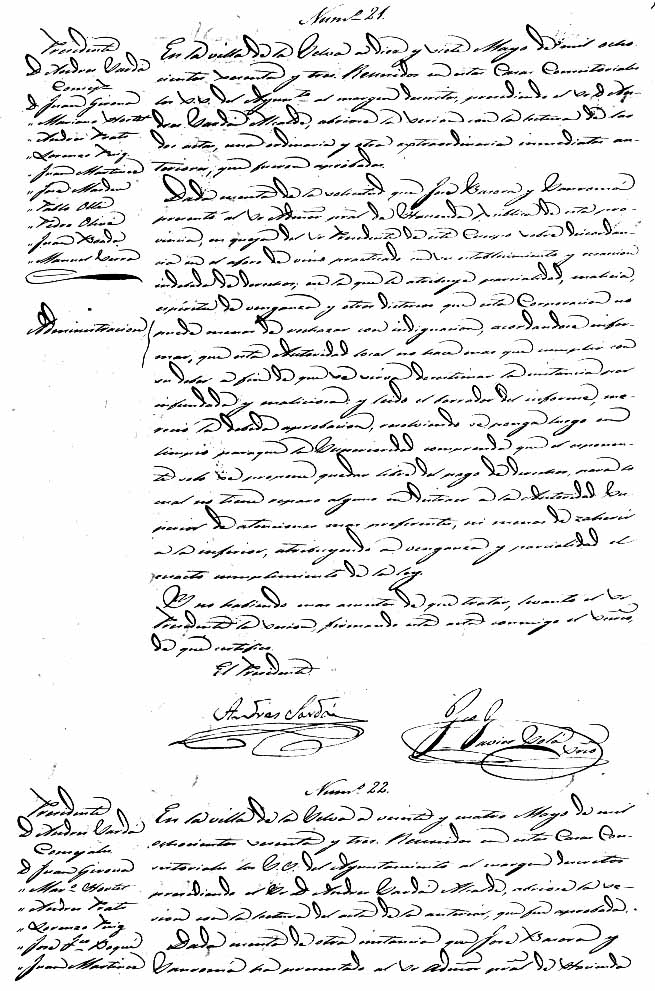 Num.º 21.
Presidente
D. Andres Sardá
Concej.s
D. Juan Girona
" Mariano Hortet
" Andres Prats
" Lorenzo Puig
" Juan Martinez
" José
" Pablo Ollé
" Pedro Oliva
" Juan
" Manuel
En la villa de la Selva a diez y siete Mayo de mil ocho
cientos setenta y tres. Reunidos en estas Casas Consistoriales
los S.S. del Ayunt.to al margen descritos, presidiendo el Sr. D. An-
dres Sardá Alcalde, abriose la sesion con la lectura de las
dos actas, una ordinaria y otra extraordinaria inmediatas an-
teriores, que fueron aprobadas.
Administracion
Dada cuenta de la solicitud que José y
presentó al Sr. Admor. pral. de Hacienda publica de esta pro-
vincia, en queja del Sr. Presidente de este Cuerpo sobre discordan-
cia en el aforo de vino practicado en su establecimiento y exaccion
indebida de derechos, en la que le atribuye parcialidad, malicia,
espíritu de venganza y otros dicterios que esta Corporacion no
puede menos de rechazar con indignacion, acordandose infor-
mar, que esta Autoridad local no hace mas que cumplir con
su deber, a fin de que se sirva desestimar la instancia por
infundada y maliciosa; y leido el borrador del informe, me-
reció la debida aprobacion, resolviendo se ponga luego en
limpio para que la Superioridad comprenda que el exponen-
te solo se propone quedar libre del pago de derechos, para lo
cual no tiene reparo alguno en distraer a la Autoridad Su-
perior de atenciones mas preferentes, ni menos de zaherir
a la inferior, atribuyendo a venganza y parcialidad el
exacto cumplimiento de la ley.
Y no habiendo mas asuntos de que tratar, levantó el Sr.
Presidente la sesion, firmando esta acta conmigo el Srio,
de que certifico.
El Presidente
Andres Sardá
Javier Srio
Num.º 22.
Presidente
D. Andres Sardá
Concejales
D. Juan Girona
" Mar.º Hortet
" Andres Prats
" Lorenzo Puig
" José F.co
" Juan Martinez
En la villa de la Selva a veinte y cuatro Mayo de mil
ochocientos setenta y tres. Reunidos en estas Casas Con-
sistoriales los S.S. del Ayuntamiento al margen descritos
presidiendo el Sr. D. Andres Sardá Alcalde, abriose la se-
sion con la lectura del acta de la anterior, que fue aprobada.
Dada cuenta de otra instancia que José y
ha presentado al Sr. Admor. pral. de Hacienda